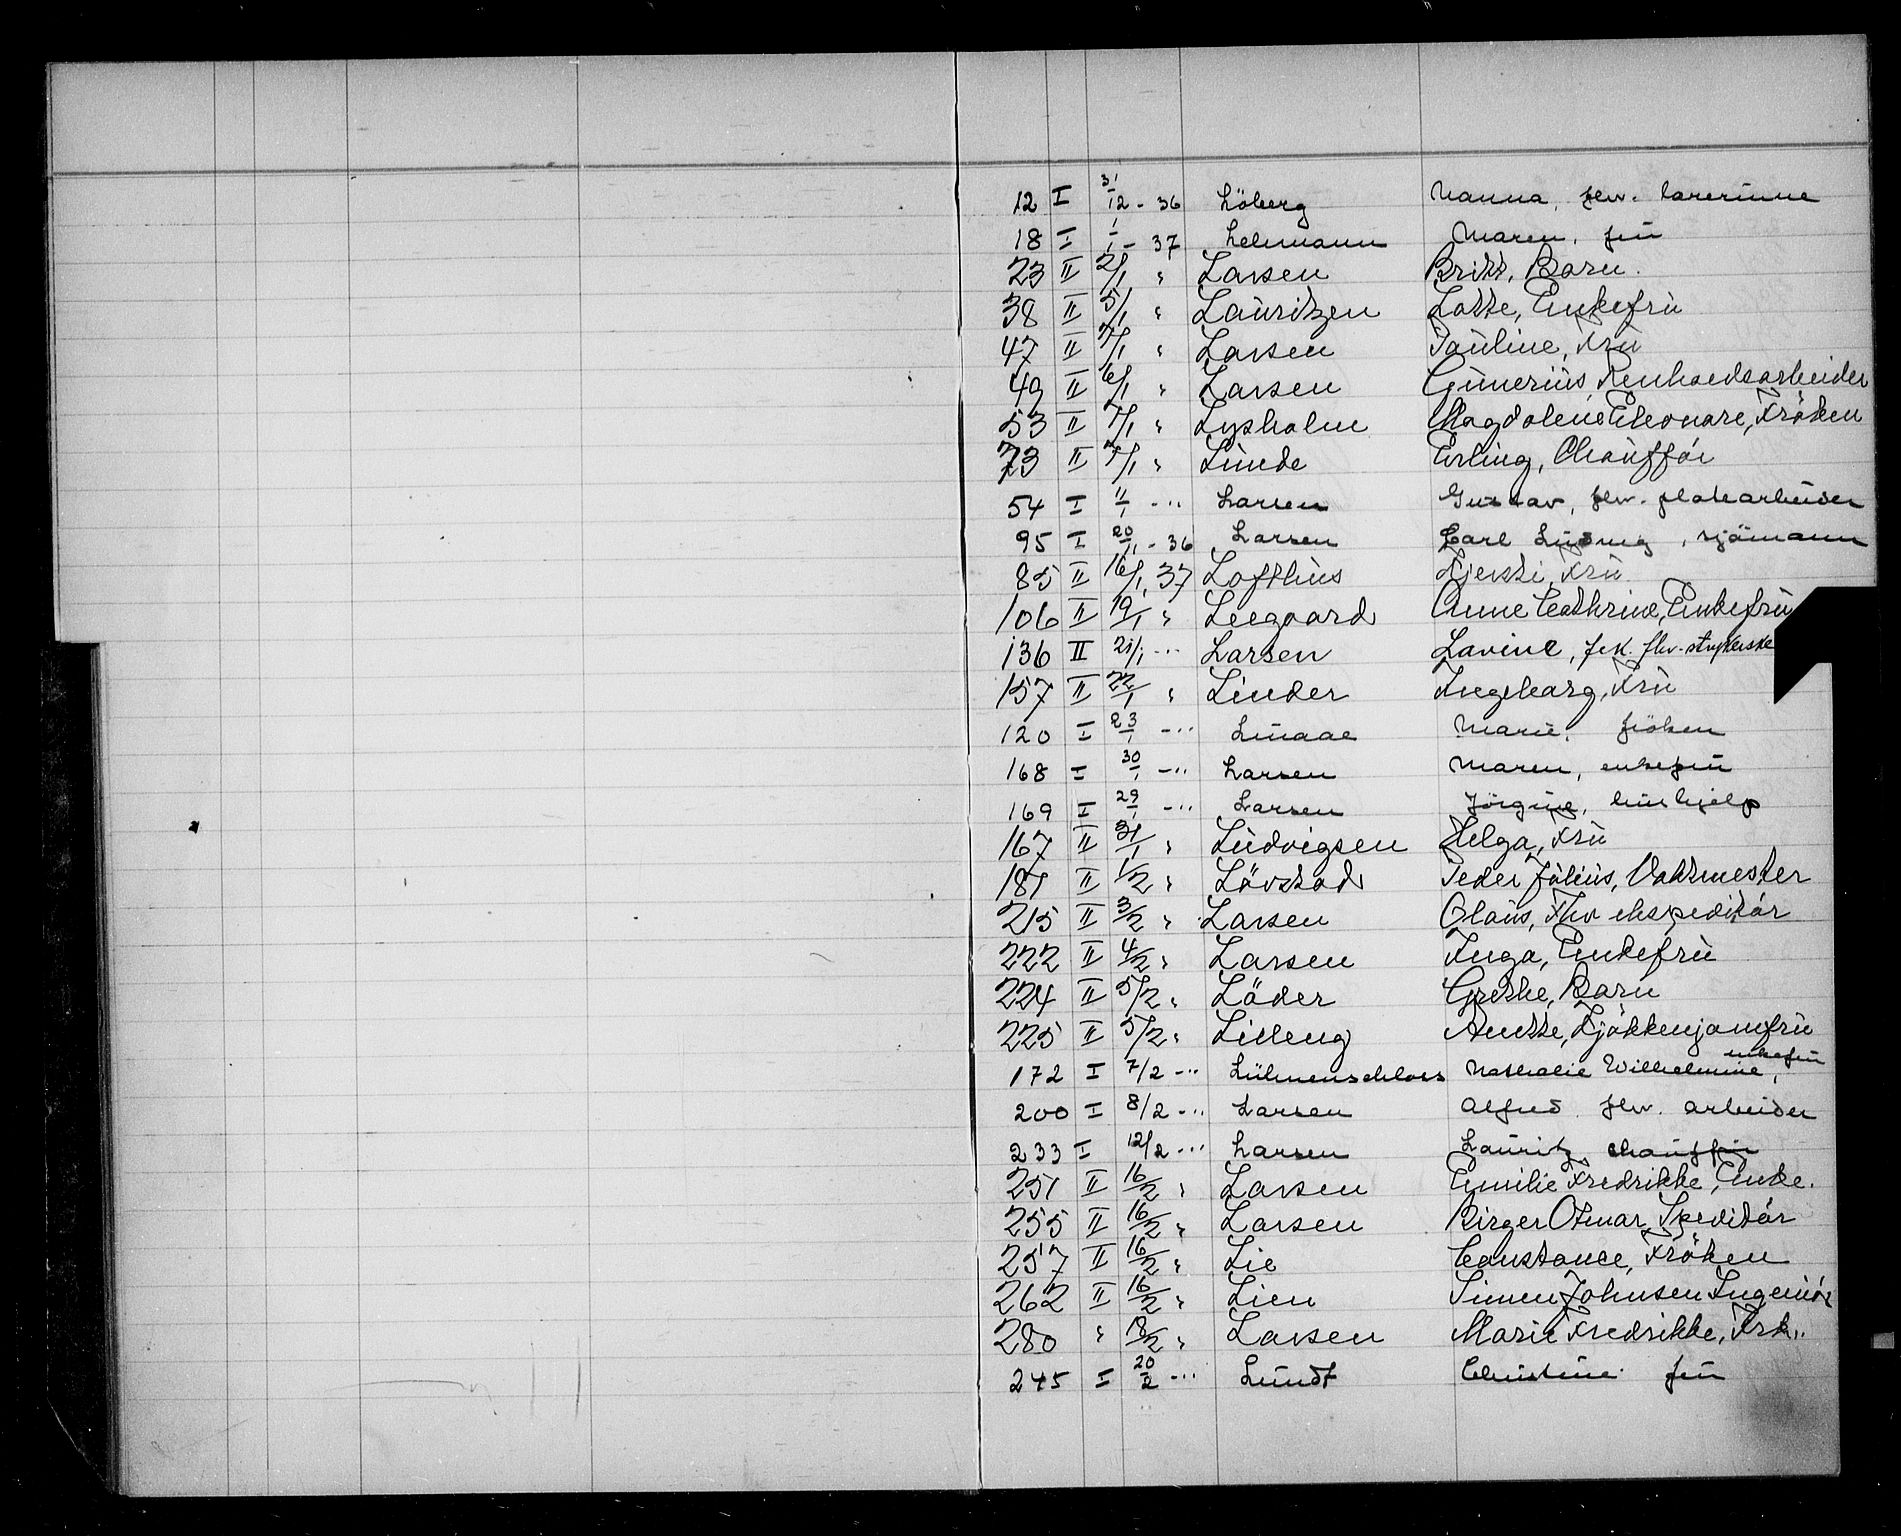 12 I 31/12 - 36 Löberg Nanna, fhv. lærerinne
18 I 1/1 - 37 Lehmann Maren, fru
23 II 2/1 " Larsen Britt, Barn.
38 II 5/1 " Lauritzen Lotte, Enkefru
47 II 7/1 " Larsen Pauline, Fru
49 II 6/1 " Larsen Gunerius, Renholdsarbeider
53 II 7/1 " Lysholm Magdolene Eleonore, Fröken
73 II 7/1 " Lunde Erling, Chauffór
54 I 11/1 - " Larsen Gustav, fhv. platearbeider
95 I 20/11 - 36 Larsen Carl Ludvig, sjömann
85 II 16/1 37 Lofthus Kjersti, Fru
106 II 19/1 " Leegaard Anne Cathrine, Enkefru
136 II 21/1 - " Larsen Lavine, frk. fhv. strykerske
157 II 22/1 " Linder Ingeborg, Fru
120 I 23/1 - " Linaae Marie, fröken
168 I 30/1 - " Larsen Maren, enkefru
169 I 29/1 - " Larsen Jörgine, hushjelp
167 II 31/1 " Ludvigsen Helga, Fru
181 II 1/2 " Lövstad Peder Julius, Vaktmester
215 II 3/2 " Larsen Olaus, Fhv ekspeditör
222 II 4/2 " Larsen Inga, Enkefru
224 II 5/2 " Löder Grethe, Barn
225 II 5/2 " Lilleng Anette, Kjökkenjomfru
172 I 7/2 - " Lühnenschloss Nathalie Wilhelmine, enkefru
200 I 8/2 - " Larsen Alfred fhv. arbeider
233 I 12/2 - " Larsen Lauritz, chaufför
251 II 16/2 " Larsen Emilie Fredrikke, Enke.
255 II 16/2 " Larsen Birger Otmar, Speditör
257 II 16/2 " Lie Constance, Fröken
262 II 16/2 " Lien Simen Johnsen Ingeniör
280 " 18/2 " Larsen Marie Fredrikke, Frk.
245 I 20/2 - " Lundt Christine fru